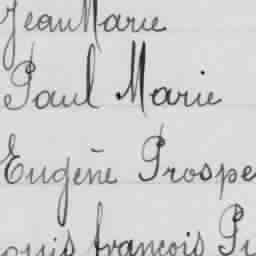 Jean Marie
Paul Marie
Eugène Prospe
ouis françois Pi